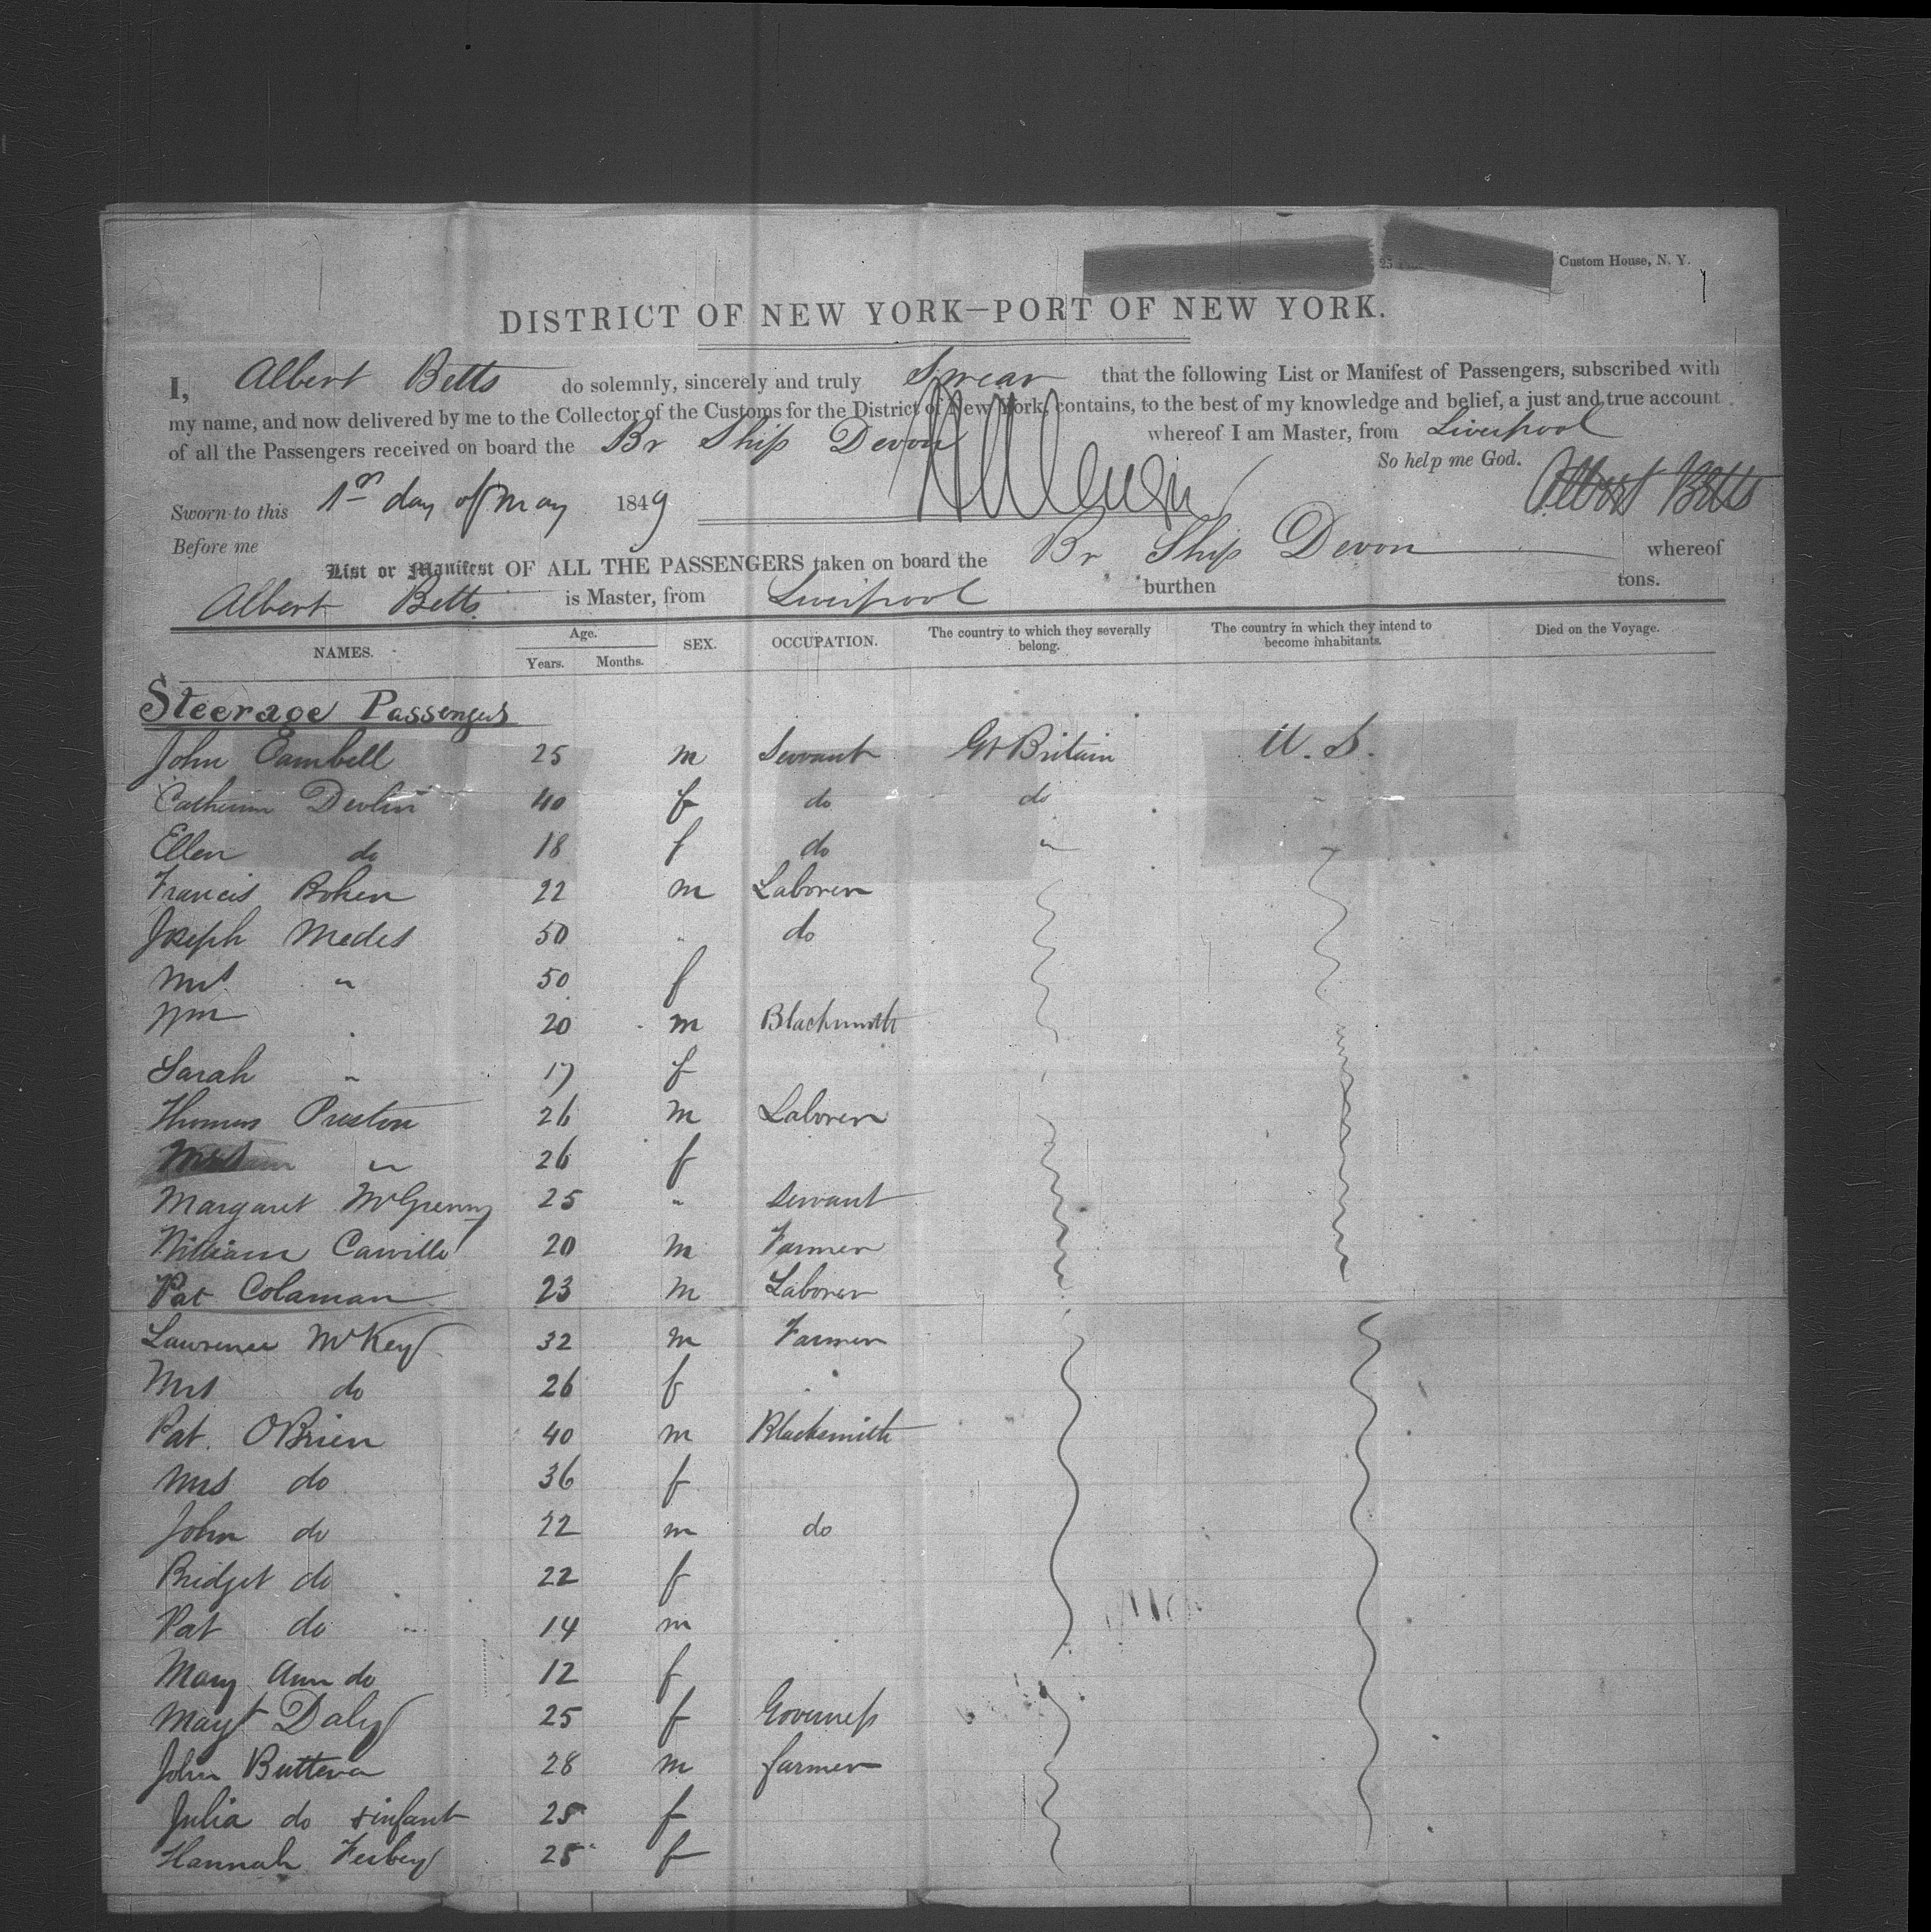 Custom House, N. Y.
1
DISTRICT OF NEW YORK—PORT OF NEW YORK.
I, Albert Betts do solemnly, sincerely and truly Swear that the following List or Manifest of Passengers, subscribed with
my name, and now delivered by me to the Collector of the Customs for the District of New York, contains, to the best of my knowledge and belief, a just and true account
of all the Passengers received on board the Br Ship Devon whereof I am Master, from Liverpool
So help me God.
Sworn to this 1st day of May 1849 Albert Betts
Before me
List or Manifest OF ALL THE PASSENGERS taken on board the Br Ship Devon whereof
Albert Betts is Master, from Liverpool burthen tons.
NAMES. Age. Years. Months. SEX. OCCUPATION. The country to which they severally belong. The country in which they intend to become inhabitants. Died on the Voyage.
Steerage Passengers
John Cambell 25 m Servant Gt Britain U. S.
Catherine Devlin 40 f do do
Ellen do 18 f do "
Francis Boken 22 m Laborer
Joseph Medes 50 " do
Mrs " 50 f
Wm 20 m Blacksmith
Sarah " 17 f
Thomas Preston 26 m Laborer
Mrs " 26 f
Margaret 25 " Servant
William Carville 20 m Farmer
Pat Colaman 23 m Laborer
Lawrence McKey 32 m Farmer
Mrs do 26 f
Pat. OBrien 40 m Blacksmith
Mrs do 36 f
John do 22 m do
Bridget do 22 f
Pat do 14 m
Mary Ann do 12 f
Magt Daly 25 f Governess
John Buttera 28 m farmer
Julia do + infant 25 f
Hannah 25 f